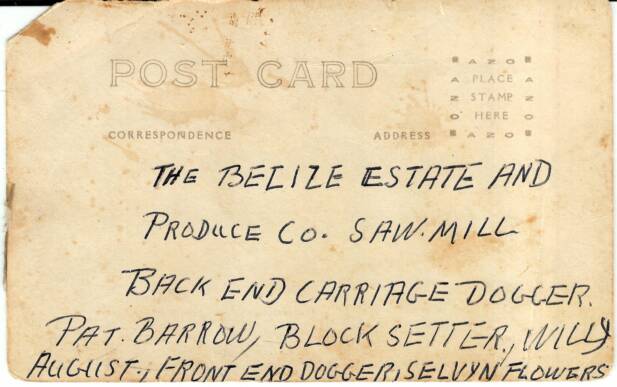 POST CARD
AZO
A PLACE A
Z STAMP Z
O HERE O
AZO
CORRESPONDENCE ADDRESS
THE BELIZE ESTATE AND
PRODUCE CO. SAW. MILL
BACK END CARRIAGE DOGGER.
PAT. BARROW, BLOCK SETTER., WILLY
AUGUST., FRONT END DOGGER, SELVYN FLOWERS